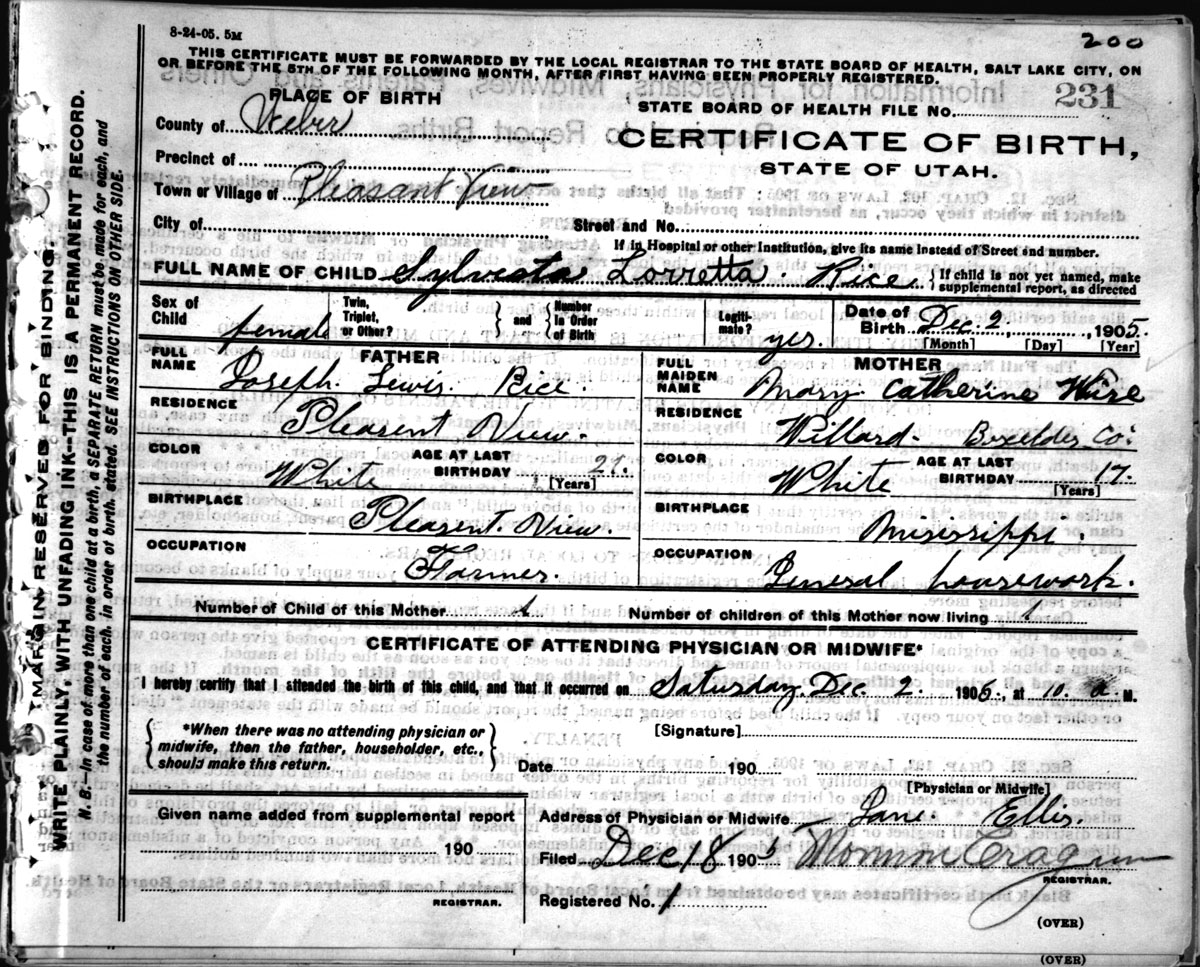 8-24-05. 5M
200
THIS CERTIFICATE MUST BE FORWARDED BY THE LOCAL REGISTRAR TO THE STATE BOARD OF HEALTH, SALT LAKE CITY, ON
OR BEFORE THE 5TH OF THE FOLLOWING MONTH, AFTER FIRST HAVING BEEN PROPERLY REGISTERED.
PLACE OF BIRTH
231
STATE BOARD OF HEALTH FILE NO.
County of Weber
CERTIFICATE OF BIRTH,
Precinct of
STATE OF UTAH.
Town or Village of Pleasant View
City of
Street and No.
If in Hospital or other Institution, give its name instead of Street and number.
FULL NAME OF CHILD Sylvesta Lorretta Rice
{ If child is not yet named, make
supplemental report, as directed
Sex of Child female
Twin, Triplet, or Other? } and { Number In Order of Birth
Legitimate? yes.
Date of Birth Dec. 2, 1905.
[Month] [Day] [Year]
FATHER
FULL NAME Joseph. Lewis. Rice.
RESIDENCE Pleasent View.
COLOR White
AGE AT LAST BIRTHDAY 27.
[Years]
BIRTHPLACE Pleasent. View.
OCCUPATION Farmer.
MOTHER
FULL MAIDEN NAME Mary Catherine
RESIDENCE Willard- Boxelder Co.
COLOR White
AGE AT LAST BIRTHDAY 17.
[Years]
BIRTHPLACE Missisippi.
OCCUPATION General housework.
Number of Child of this Mother 1
Number of children of this Mother now living 1
CERTIFICATE OF ATTENDING PHYSICIAN OR MIDWIFE*
I hereby certify that I attended the birth of this child, and that it occurred on Saturday. Dec. 2. 1905., at 10. a. M.
{ *When there was no attending physician or
midwife, then the father, householder, etc.,
should make this return. }
[Signature]
Date 190
[Physician or Midwife]
Given name added from supplemental report
190
REGISTRAR.
Address of Physician or Midwife Jane. Ellis.
Filed Dec 18 1905
REGISTRAR.
Registered No. 1
(OVER)
(OVER)
MARGIN RESERVED FOR BINDING.
WRITE PLAINLY, WITH UNFADING INK—THIS IS A PERMANENT RECORD.
N. B.—In case of more than one child at a birth, a SEPARATE RETURN must be made for each, and
the number of each, in order of birth, stated. SEE INSTRUCTIONS ON OTHER SIDE.